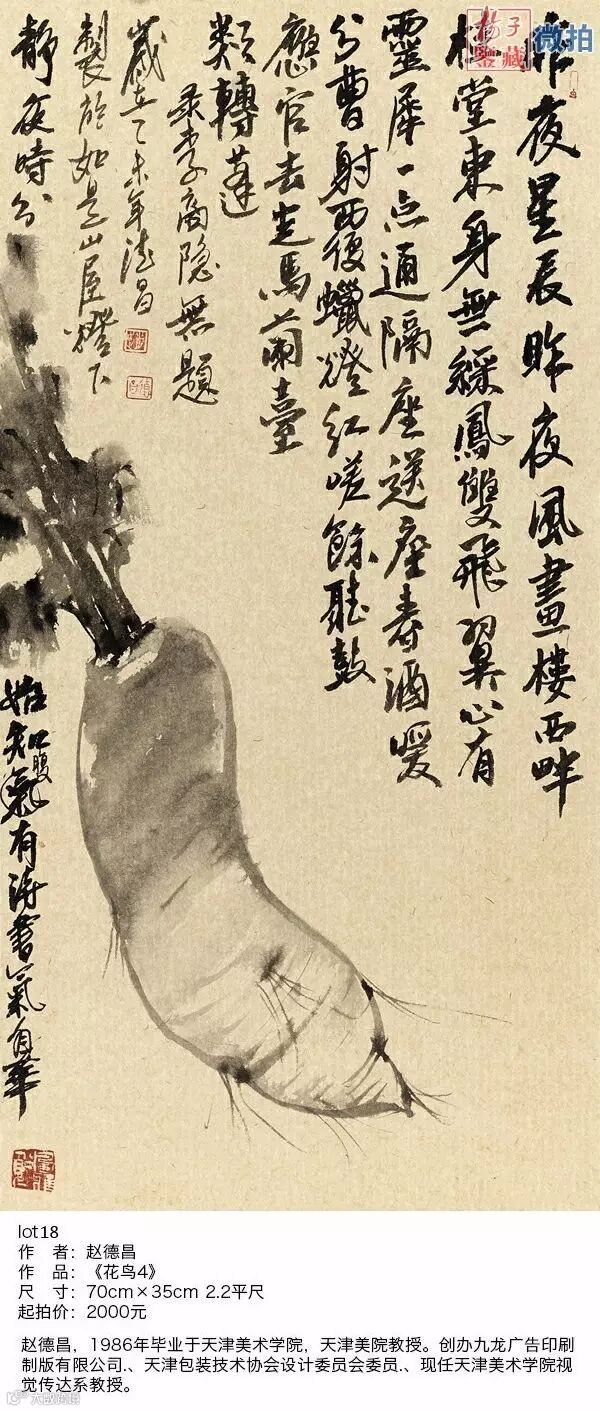 揚子
鑒藏
微拍
昨夜星辰昨夜風畫樓西畔
桂堂東身無綵鳳雙飛翼心有
靈犀一点通隔座送座春酒暖
分曹射西復蠟燈紅嗟餘聽鼓
應官去走馬蘭臺
類轉蓬
录李商隐無題
歲在乙未年德昌
製於如是山屋燈下
靜夜時分
始知腹氣有诗書氣自華
lot18
作 者：赵德昌
作 品：《花鸟4》
尺 寸：70cm×35cm 2.2平尺
起拍价：2000元
赵德昌，1986年毕业于天津美术学院，天津美院教授。创办九龙广告印刷
制版有限公司.、天津包装技术协会设计委员会委员.、现任天津美术学院视
觉传达系教授。
大数跨境